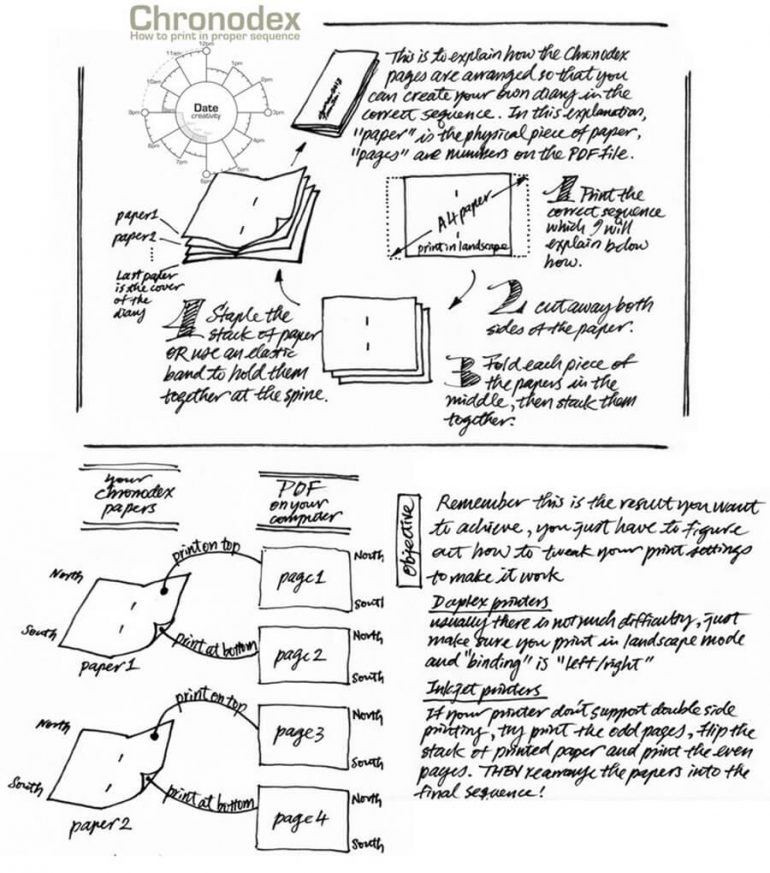 Chronodex
How to print in proper sequence
12pm
11am
1pm
10am
2pm
9pm
Date
creativity
3pm
8pm
4pm
7pm
5pm
6pm
This is to explain how the Chronodex
pages are arranged so that you
can create your own diary in the
correct sequence. In this explanation,
"paper" is the physical piece of paper,
"pages" are numbers on the PDF file.
paper1
paper2
Last paper
is the cover
of the
diary
A4 paper
print in landscape
1 Print the
correct sequence
which I will
explain below
how.
2 cut away both
sides of the paper.
3 Fold each piece of
the papers in the
middle, then stack them
together.
Staple the
stack of paper
OR use an elastic
band to hold them
together at the spine.
your
chronodex
papers
PDF
on your
computer
print on top
North
South
paper1
print at bottom
page1
North
South
page2
North
South
print on top
North
South
paper2
print at bottom
page3
North
South
page4
North
South
Objective
Remember this is the result you want
to achieve, you just have to figure
out how to tweak your print settings
to make it work
Duplex printers
usually there is not much difficulty, just
make sure you print in landscape mode
and "binding" is "left/right"
Inkjet printers
If your printer don't support double side
printing, try print the odd pages, flip the
stack of printed paper and print the even
pages. THEN rearrange the papers into the
final sequence!